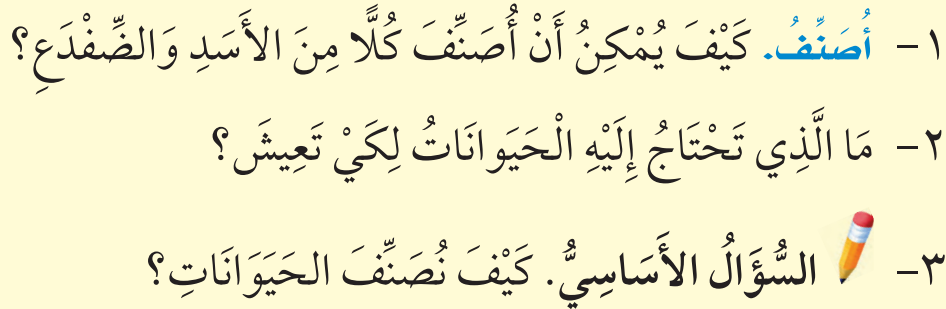 ١- أُصَنِّفُ. كَيْفَ يُمْكِنُ أَنْ أُصَنِّفَ كُلًّا مِنَ الأَسَدِ وَالضِّفْدَعِ؟
٢- مَا الَّذِي تَحْتَاجُ إِلَيْهِ الْحَيَوانَاتُ لِكَيْ تَعِيشَ؟
٣- السُّؤَالُ الأَسَاسِيُّ. كَيْفَ نُصَنِّفَ الحَيَوَانَاتِ؟